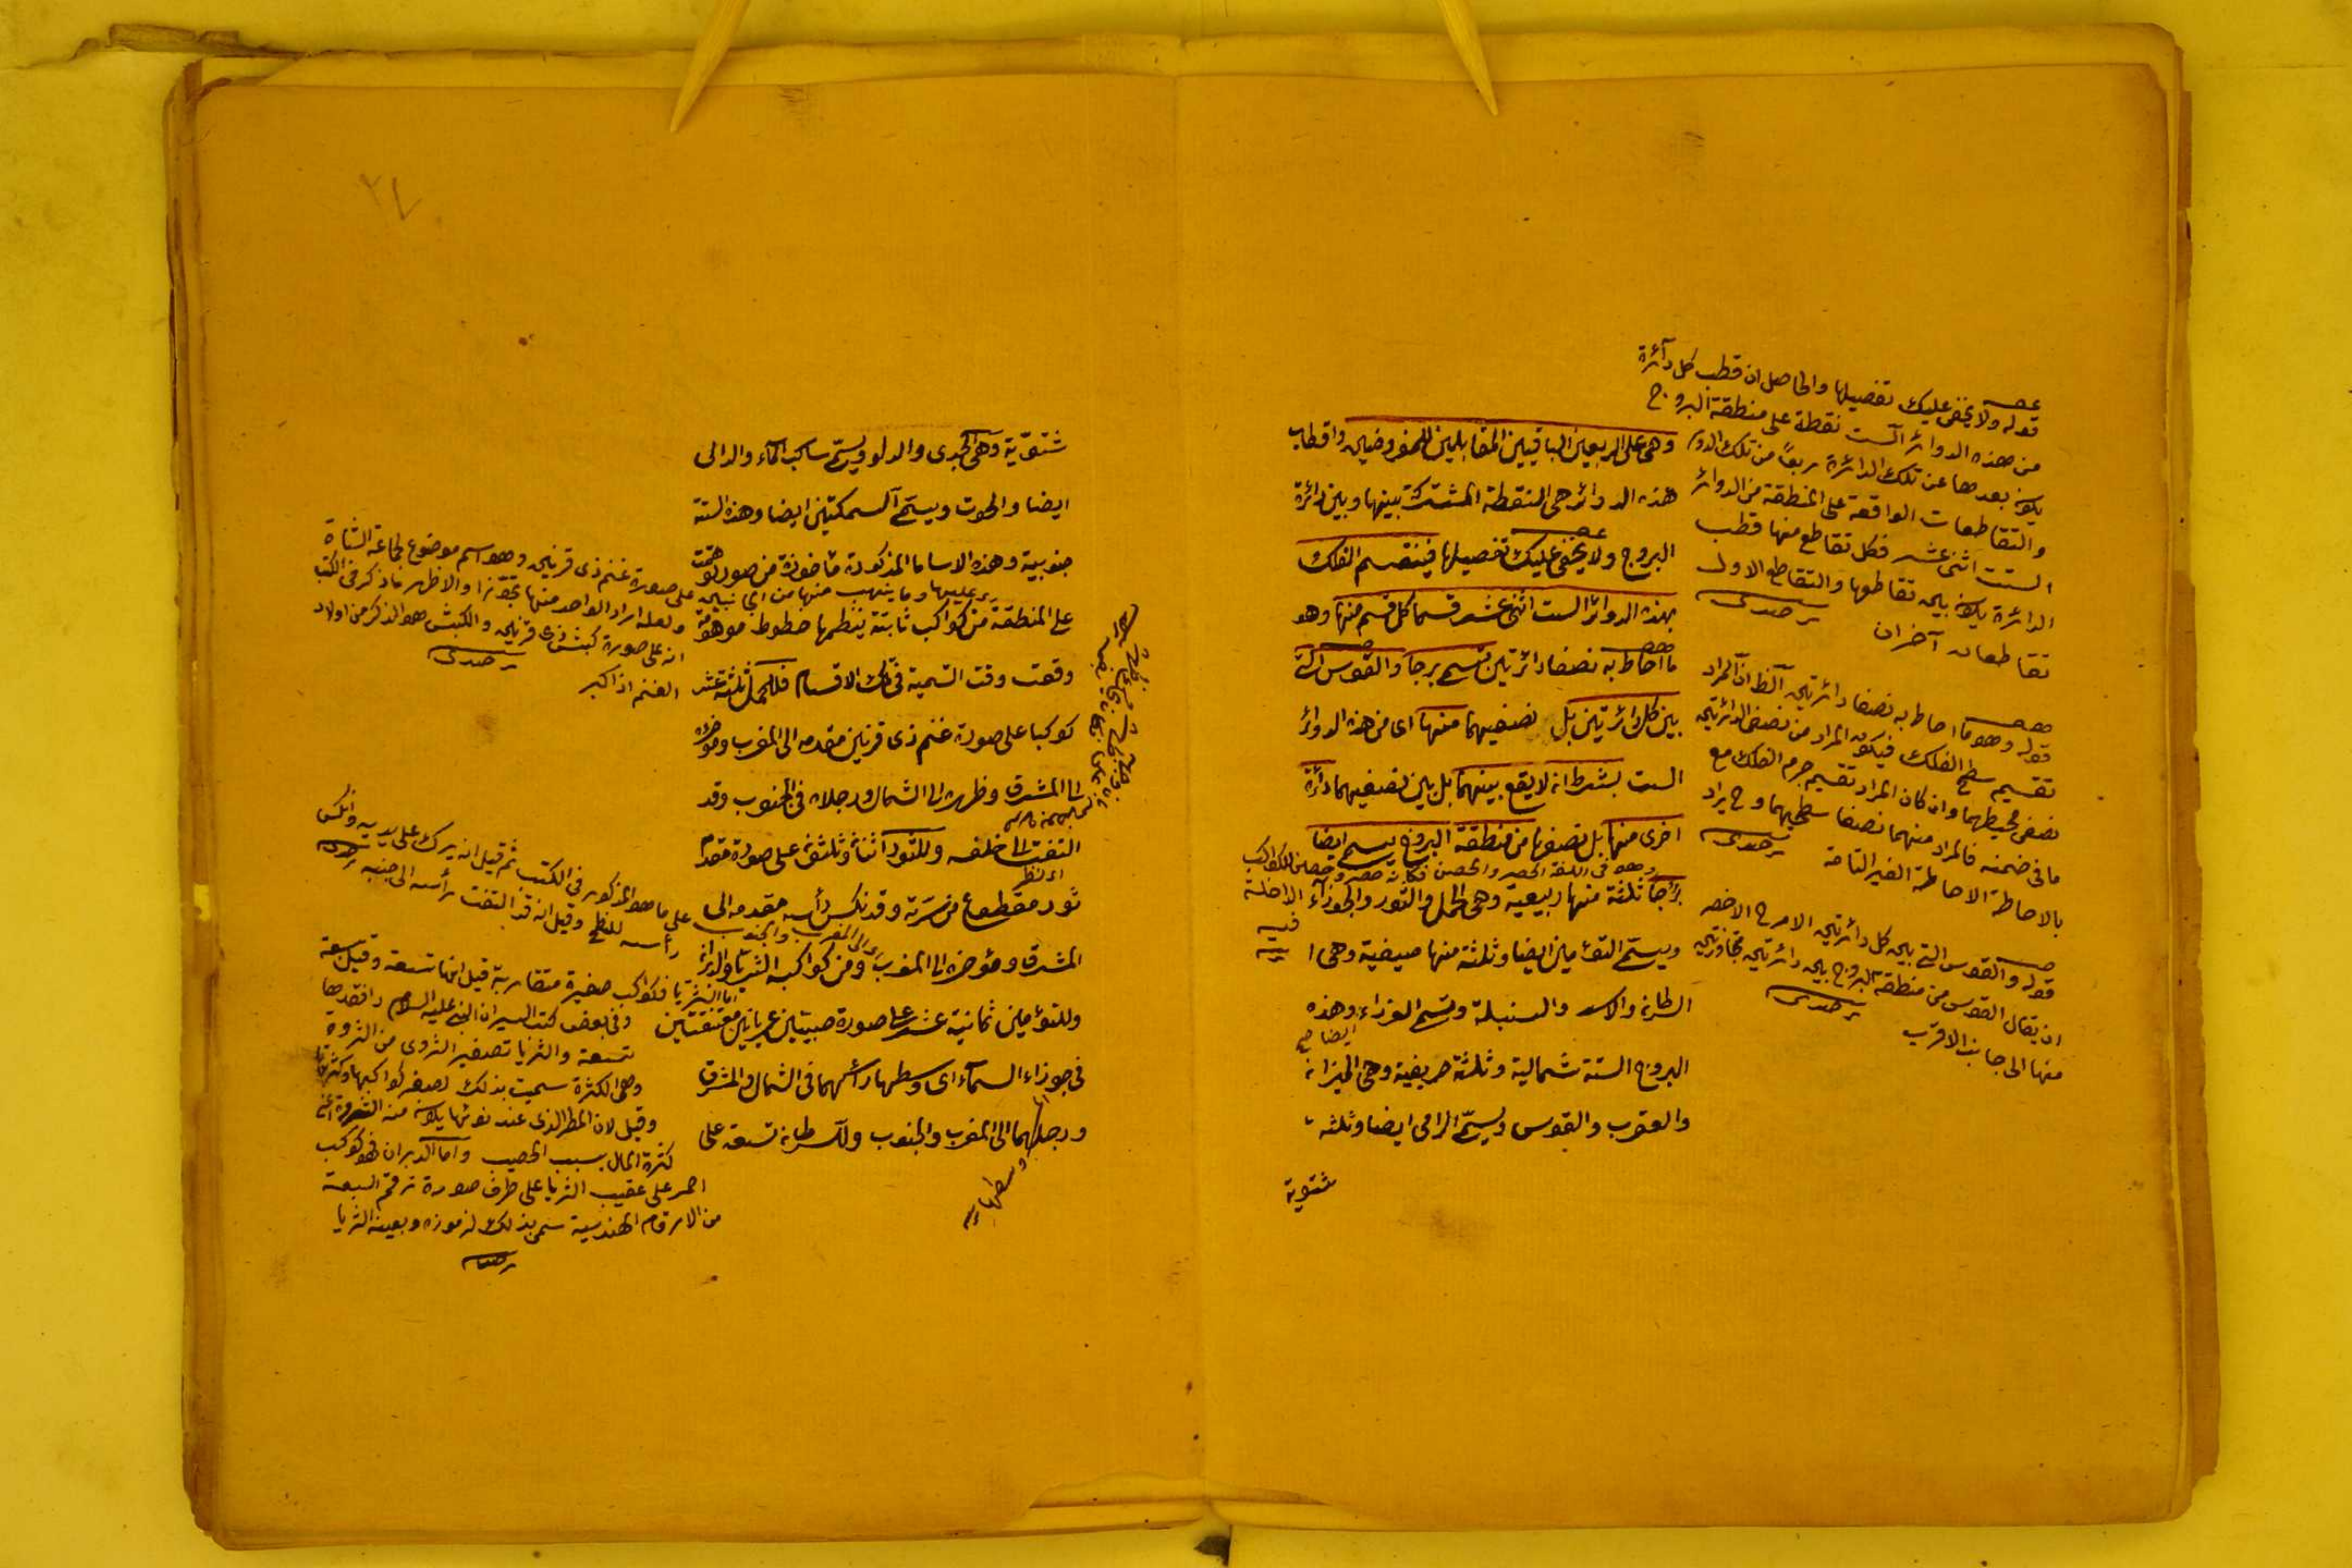 وهى على الربعين الباقيين المقابلين للمفروضين واقطاب
هذه الدوائر هى النقطة المشتركة بينها وبين دائرة
البروج ولا يخفى عليك تفصيلها فينقسم الفلك
بهذه الدوائر الست اثنى عشر قسما كل قسم منها وهو
ما احاط به نصفا دائرتين تسمى برجا والقوس التى
بين كل دائرتين بل نصفيهما منها اى من هذه الدوائر
الست بشرط ان لا يقع بينهما بل بين نصفيهما دائرة
اخرى منها بل نصفها من منطقة البروج يسمى ايضا
برجا ثلثة منها ربيعية وهى الحمل والثور والجوزاء
ويسمى التؤمين ايضا وثلثة منها صيفية وهى ا
السرطان والاسد والسنبلة وتسمى العذراء وهذه
ايضا صح
البروج الستة شمالية وثلثة خريفية وهى الميزان
والعقرب والقوس ويسمّى الرامى ايضا وثلثه
شتوية
قوله ولا يخفى عليك تفصيلها والحاصل ان قطب كل دآئرة
من هذه الدوائر الست نقطة على منطقة البروج
يكون بعدها عن تلك الدائرة ربعا من تلك الدور
والتقاطعات الواقعة على المنطقة من الدوائر
الست اثنى عشر فكل تقاطع منها قطب
الدائرة يكون بين تقاطعها والتقاطع الاول
تقاطعان آخران
قوله وهو ما احاط به نصفا دائرتين الظ ان المراد
تقسيم سطح الفلك فيكون المراد من نصفى الدائرتين
نصفى محيطهما وان كان المراد تقسيم جرم الفلك مع
ما فى ضمنه فالمراد منهما نصفا سطحيهما وح يراد
بالاحاطة الاحاطة الغير التامة
قوله والقوس التى بين كل دائرتين
اذ يقال القوس من منطقة البروج بين دائرتين متجاورتين
منها الى جانب الاقرب
وهو فى اللغة القصر والحصن فكأنه قصر وحصن للكواكب
الداخلة
فيه
شتويّة وهى الجدى والدلو ويسمّى ساكب المآء والدالى
ايضا والحوت ويسمّى السمكتين ايضا وهذه الستة
جنوبية وهذه الاسامى المذكورة مأخوذة من صور توهمت
على المنطقة من كواكب ثابتة ينظمها خطوط موهومة
وقعت وقت التسمية فى تلك الاقسام فللحمل ثلثة عشر
كوكبا على صورة غنم ذى قرنين مقدمه الى المغرب ومؤخره
الى المشرق وظهره الى الشمال ورجلاه فى الجنوب وقد
التفت الى خلفه وللثور اثنان وثلثون على صورة مقدم
ثور مقطوع من سرته وقد نكس رأسه مقدمه الى
المشرق ومؤخره الى المغرب ومن كواكبه الثريا والدبران
وللتؤمين ثمانية عشر على صورة صبيين عريانين معتنقين
فى جوزاء السمآء اى وسطها رأسهما فى الشمال والمشرق
ورجلاهما الى المغرب والجنوب وللسرطان تسعة على
على صورة غنم ذى قرنين وهو اسم موضوع لجماعة الشاة
ولعله اراد الواحد منها تجوزا والاظهر ما ذكر فى الكتب
انه على صورة كبش ذى قرنين والكبش هو الذكر من اولاد
الغنم اذا كبر
على ما هو المذكور فى الكتب ثم قيل انه يبرك على يديه ونكس
رأسه للنطح وقيل انه قد التفت رأسه الى جنبه
اما الثريا فكواكب صغيرة متقاربة قيل انها تسعة وقيل سبعة
وفى بعض كتب السير ان النبى عليه السلام
تسعة والثريا تصغير الثروى من الثروة
وهى الكثرة سميت بذلك لصغر كواكبها وكثرتها
وقيل لان المطر الذى عند نوئها يكون منه الثروة اعنى
كثرة المال بسبب الخصب واما الدبران فهو كوكب
احمر على عقيب الثريا على طرف صورة رقم السبعة
من الارقام الهندسية سمى بذلك
وسطها
٢٧